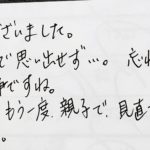 ございました。
で思い出せず…。忘れ
事ですね。
もう一度、親子で、見直
。